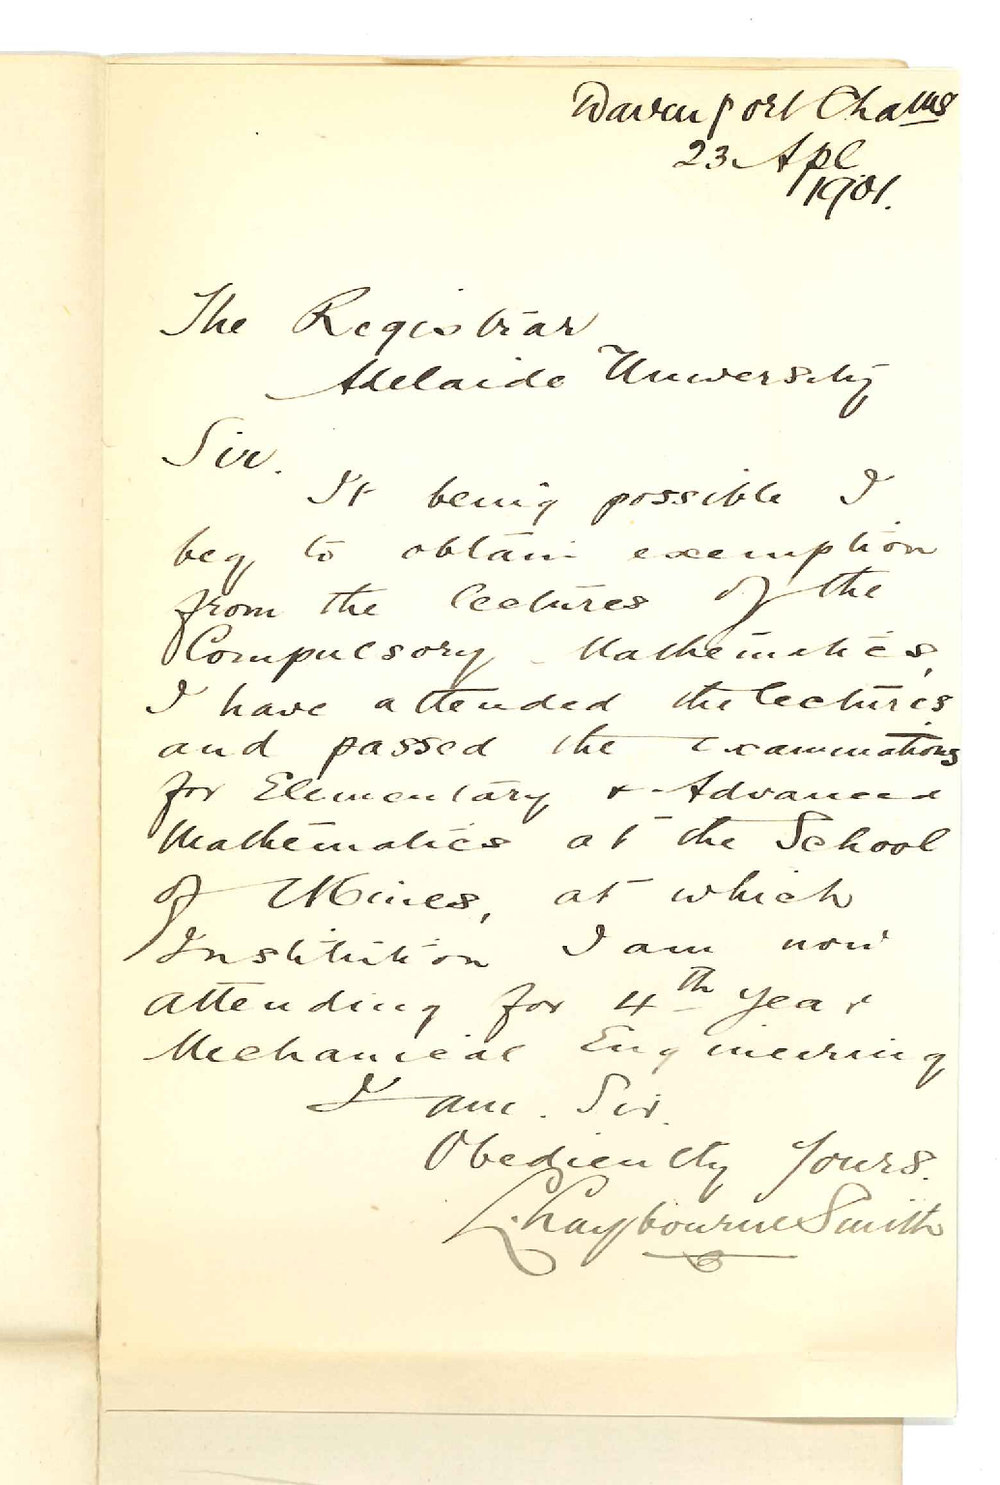 Davenport Chambs
23 Apl
1901.
The Registrar
Adelaide University
Sir.
It being possible I
beg to obtain exemption
from the lectures of the
Compulsory Mathematics,
I have attended the lectures
and passed the Examinations
for Elementary & Advanced
Mathematics at the School
of Mines, at which
Institution I am now
attending for 4th year
Mechanical Engineering
I am. Sir.
Obediently Yours.
L. Laybourne Smith